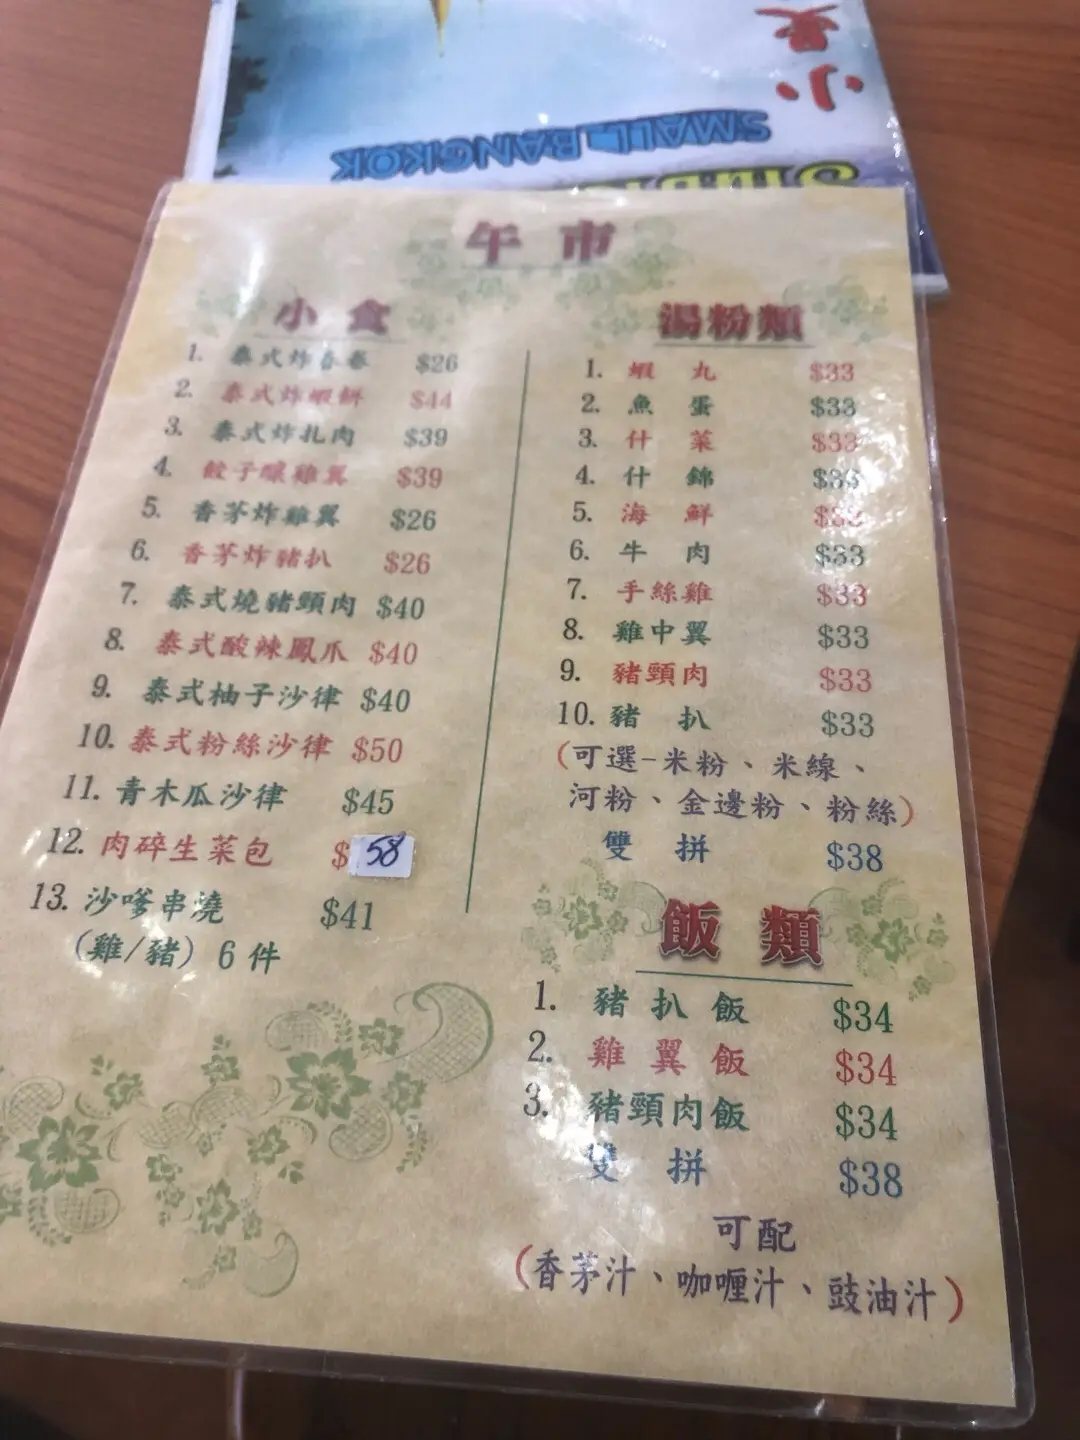 小曼
SMALL BANGKOK
午市
小食
1. 泰式炸春卷 $26
2. 泰式炸蝦餅 $44
3. 泰式炸扎肉 $39
4. 餃子釀雞翼 $39
5. 香茅炸雞翼 $26
6. 香茅炸豬扒 $26
7. 泰式燒豬頸肉 $40
8. 泰式酸辣鳳爪 $40
9. 泰式柚子沙律 $40
10. 泰式粉絲沙律 $50
11. 青木瓜沙律 $45
12. 肉碎生菜包 $58
13. 沙嗲串燒 $41
(雞/豬) 6 件
湯粉類
1. 蝦丸 $33
2. 魚蛋 $33
3. 什菜 $33
4. 什錦 $33
5. 海鮮 $33
6. 牛肉 $33
7. 手絲雞 $33
8. 雞中翼 $33
9. 豬頸肉 $33
10. 豬扒 $33
(可選-米粉、米線、
河粉、金邊粉、粉絲)
雙拼 $38
飯類
1. 豬扒飯 $34
2. 雞翼飯 $34
3. 豬頸肉飯 $34
雙拼 $38
可配
(香茅汁、咖喱汁、豉油汁)